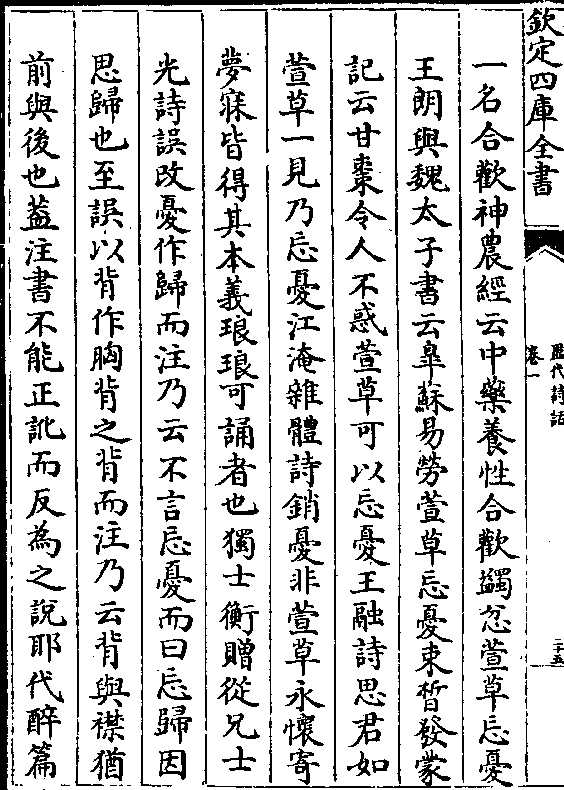 欽定四庫全書
歷代詩話
卷一
二十五
一名合歡神農經云中藥養性合歡蠲忿萱草忘憂
王朗與魏太子書云皐蘇易勞萱草忘憂束晳發蒙
記云甘棗令人不惑萱草可以忘憂王融詩思君如
萱草一見乃忘憂江淹雜體詩銷憂非萱草永懷寄
夢寐皆得其本義琅琅可誦者也獨士衡贈從兄士
光詩誤改憂作歸而注乃云不言忘憂而曰忘歸因
思歸也至誤以背作胸背之背而注乃云背與襟猶
前與後也葢注書不能正訛而反為之說耶代醉篇